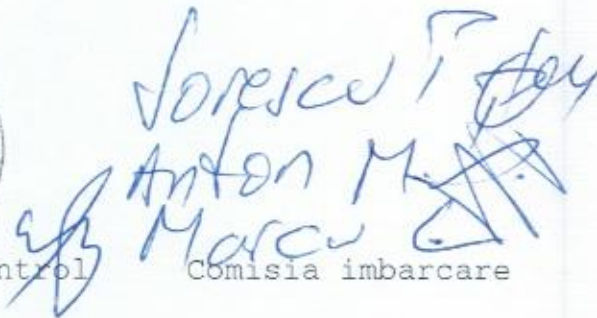 Sorescu T
Anton M
Marcu C
ntrol Comisia imbarcare